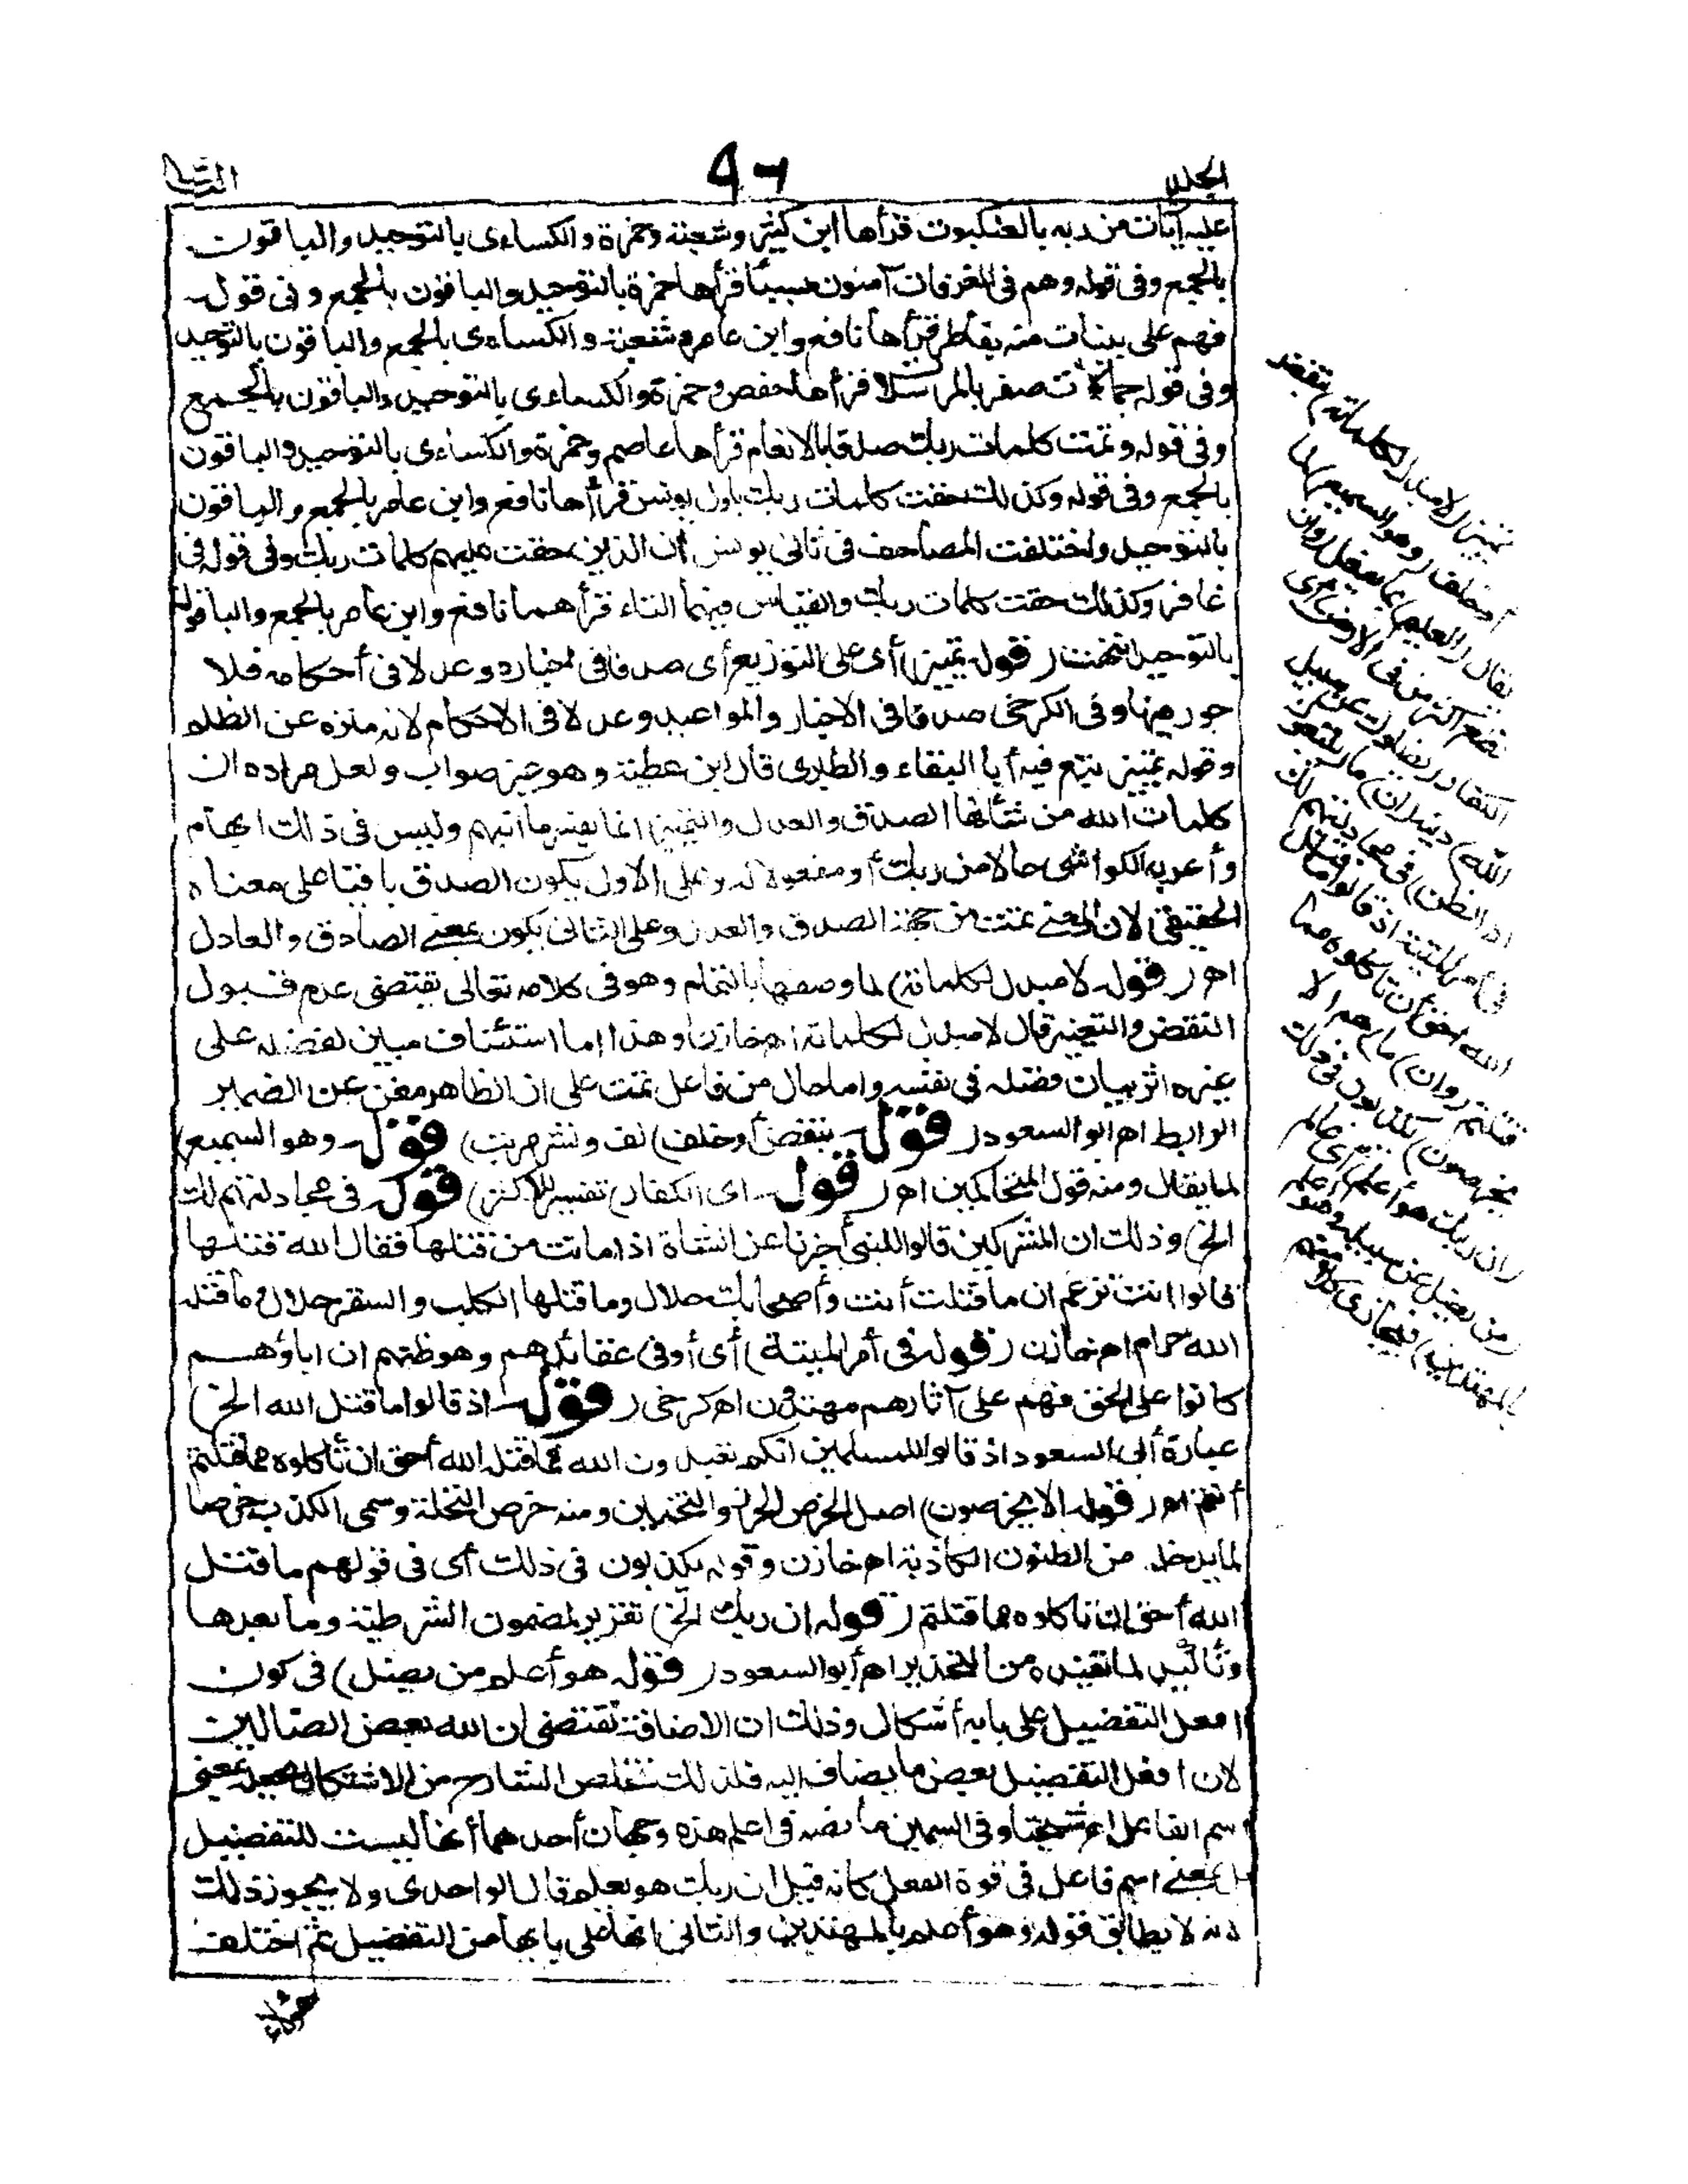 الجلد
٩٦
الثا
عليه آيات من ربه بالعنكبوت قرأها ابن كثير وشعبة وحمزة والكساءى بالتوحيد والباقون
بالجمع وفى قوله وهم فى الغرفات آمنون بسبأ قرأها حمزة بالتوحيد والباقون بالجمع وفى قوله
فهم على بينات منه بفاطر قرأها نافع وابن عامر وشعبة والكساءى بالجمع والباقون بالتوحيد
وفى قوله جمالات صفر بالمرسلات قرأها حفص وحمزة والكساءى بالتوحيد والباقون بالجمع
وفى قوله وتمت كلمات ربك صدقا بالانعام قرأها عاصم وحمزة والكساءى بالتوحيد والباقون
بالجمع وفى قوله وكذلك حقت كلمات ربك باول يونس قرأها نافع وابن عامر بالجمع والباقون
بالتوحيد واختلفت المصاحف فى ثانى يونس أن الذين حقت عليهم كلمات ربك وفى قوله فى
غافر وكذلك حقت كلمات ربك والقياس فيهما التاء قرأهما نافع وابن عامر بالجمع والباقون
بالتوحيد انتهت (قوله تمييز) أى على التوزيع أى صدقا فى اخباره وعدلا فى أحكامه فلا
جور فيها وفى الكرخى صدقا فى الاخبار والمواعيد وعدلا فى الاحكام لانه منزه عن الظلم
وقوله تمييز تبع فيه أبا البقاء والطبرى قال ابن عطية وهو غير صواب ولعل مراده ان
كلمات الله من شأنها الصدق والعدل والتمييز انما يفسر ما انبهم وليس فى ذلك ابهام
وأعربه الكواشى حالا من ربك أو مفعولا له وعلى الاول يكون الصدق باقيا على معناه
الحقيقى لان المعنى تمت من جهة الصدق والعدل وعلى الثانى يكون بمعنى الصادق والعادل
اهـ (قوله لا مبدل لكلماته) لما وصفها بالتمام وهو فى كلامه تعالى يقتضى عدم قبول
النقض والتغيير قال لا مبدل لكلماته اهـ خازن وهذا اما استئناف مبين لفضله على
غيره اثر بيان فضله فى نفسه واما حال من فاعل تمت على ان الظاهر مغن عن الضمير
الرابط اهـ ابو السعود (قوله بنقض أو خلف) لف ونشر مرتب (قوله وهو السميع)
لما يقال ومنه قول المتحاكمين اهـ (قوله اى الكفار) تفسير للاكثر (قوله فى مجادلتهم لك
الخ) وذلك ان المشركين قالوا للنبى أخبرنا عن الشاة اذا ماتت من قتلها فقال الله قتلها
قالوا انت تزعم ان ما قتلت أنت وأصحابك حلال وما قتلها الكلب والصقر حلال وما قتله
الله حرام اهـ خازن (قوله فى أمر الميتة) أى أو فى عقائدهم وهو ظنهم ان اباؤهم
كانوا على الحق فهم على آثارهم مهتدون اهـ كرخى (قوله اذ قالوا ما قتل الله الخ)
عبارة أبى السعود اذ قالوا للمسلمين انكم تعبدون الله فما قتل الله أحق ان تأكلوه مما قتلتم
أنتم اهـ (قوله الا يخرصون) اصل الخرص الحزر والتخمين ومنه خرص النخلة وسمى الكذب خرصا
لما يدخله من الظنون الكاذبة اهـ خازن وقوله يكذبون فى ذلك أى فى قولهم ما قتل
الله أحق ان تاكلوه مما قتلتم (قوله ان ربك الخ) تقرير لمضمون الشرطية وما بعدها
وتأكيد لما تفيده من التحذير اهـ أبو السعود (قوله هو أعلم من يضل) فى كون
افعل التفضيل على بابه أشكال وذلك ان الاضافة تقتضى ان الله بعض الضالين
لان افعل التفضيل بعض ما يضاف اليه فلذلك تخلص الشارح من الاشكال بجعله بمعنى
اسم الفاعل اهـ شيخنا وفى السمين ما نصه فى اعلم هذه وجهان أحدهما أنها ليست للتفضيل
بل بمعنى اسم فاعل فى قوة الفعل كانه قيل ان ربك هو يعلم قال الواحدى ولا يجوز ذلك
لانه لا يطابق قوله وهو أعلم بالمهتدين والثانى انها على بابها من التفضيل ثم اختلف
تمييز (لا مبدل لكلماته) بنقض
أو خلف (وهو السميع) لما
يقال (العليم) بما يفعل (وان
تطع أكثر من فى الارض) أى
الكفار (يضلوك عن سبيل
الله) دينه (ان) ما (يتبعون
الا الظن) فى مجادلتهم لك
فى أمر الميتة اذ قالوا ما قتل
الله أحق أن تأكلوه مما
قتلتم (وان) ما (هم الا
يخرصون) يكذبون فى ذلك
(ان ربك هو أعلم) أى عالم
(من يضل عن سبيله وهو أعلم
بالمهتدين) فيجازى كلا منهم